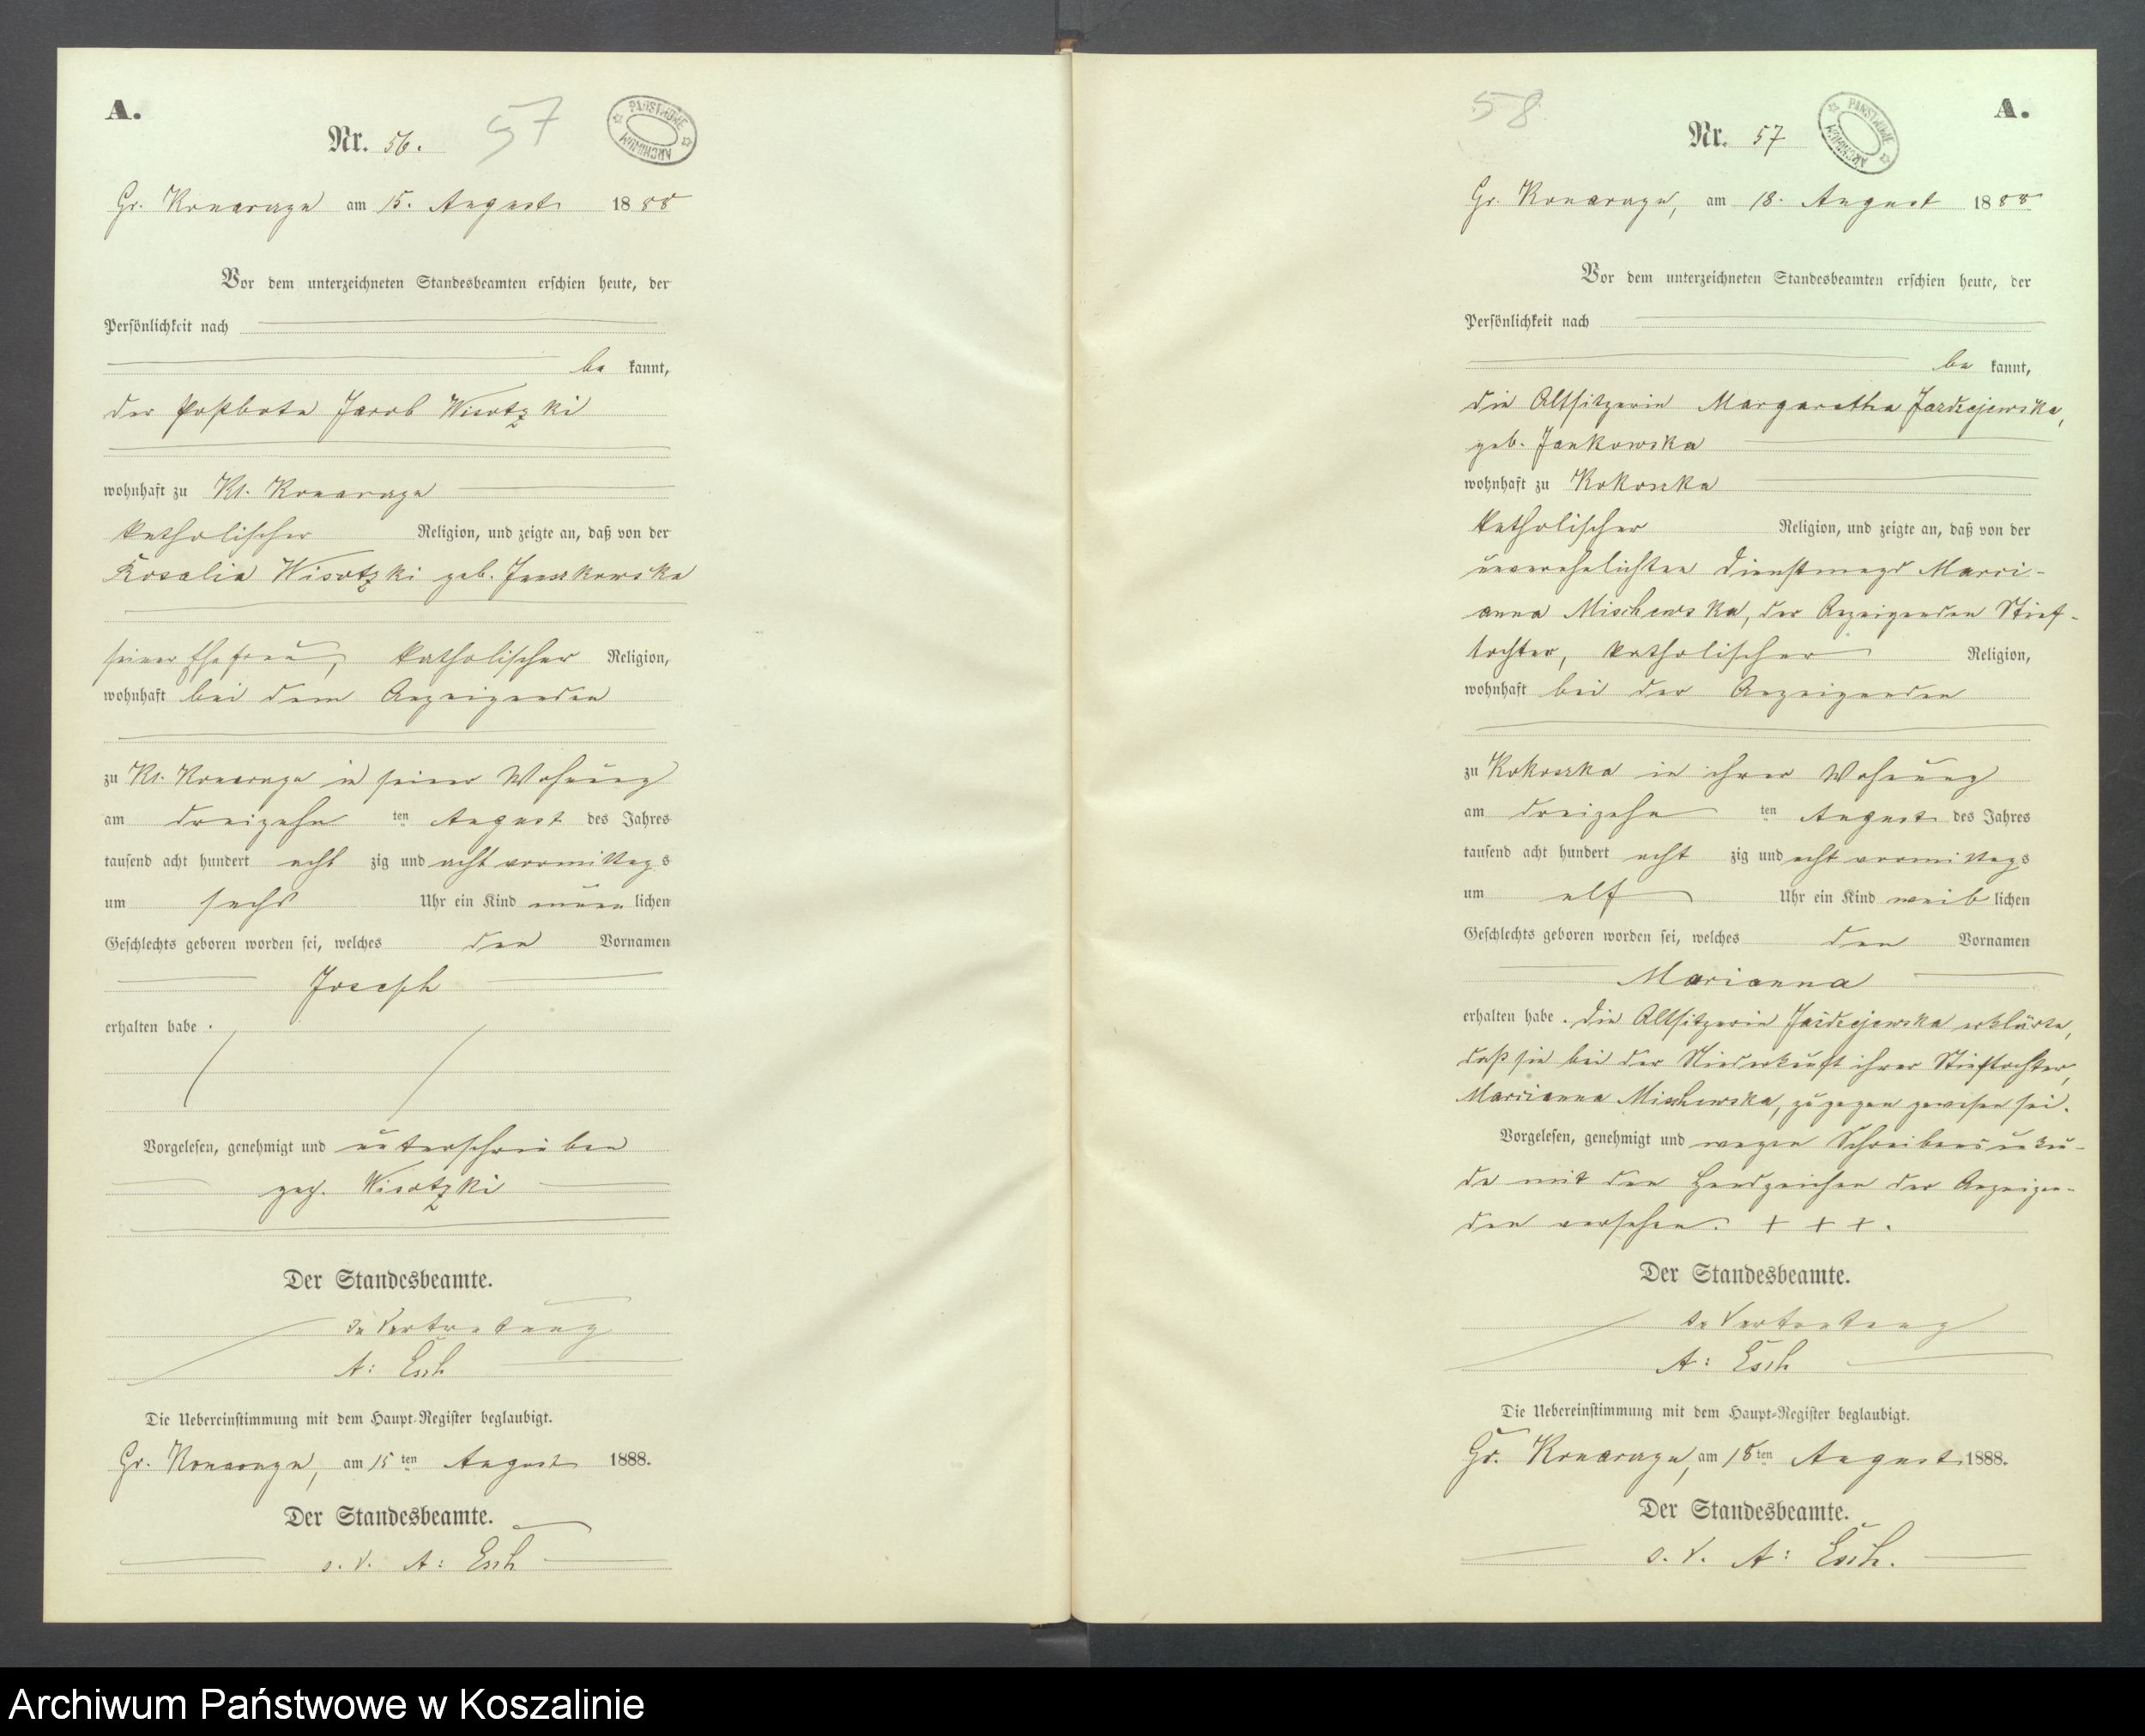 A.
Nr. 56.
57
PAŃSTWOWE
ARCHIWUM
Gr. Konarczyn am 15. August 1888
Vor dem unterzeichneten Standesbeamten erschien heute, der
Persönlichkeit nach
be kannt,
der Postbote Jacob Wisotzki
wohnhaft zu Kl. Konarczyn
katholischer Religion, und zeigte an, daß von der
Rosalia Wisotzki geb.
seiner Ehefrau, katholischer Religion,
wohnhaft bei dem Anzeigenden
zu Kl. Konarczyn in seiner Wohnung
am dreizehn ten August des Jahres
tausend acht hundert acht zig und acht vormittags
um sechs Uhr ein Kind männ lichen
Geschlechts geboren worden sei, welches den Vornamen
Joseph
erhalten habe.
Vorgelesen, genehmigt und unterschrieben
gez. Wisotzki
Der Standesbeamte.
In Vertretung
A: Esch
Die Uebereinstimmung mit dem Haupt-Register beglaubigt.
Gr. Konarczyn, am 15 ten August 1888.
Der Standesbeamte.
i. V. A: Esch
58
A.
Nr. 57
PAŃSTWOWE
ARCHIWUM
Gr. Konarczyn, am 18. August 1888
Vor dem unterzeichneten Standesbeamten erschien heute, der
Persönlichkeit nach
be kannt,
die Altsitzerin Margaretha Jazdzejewska,
geb. Jankowska
wohnhaft zu Kokoszka
katholischer Religion, und zeigte an, daß von der
unverehelichten Dienstmagd Marri-
anna Mischewska, der Anzeigenden Stief-
tochter, katholischer Religion,
wohnhaft bei der Anzeigenden
zu Kokoszka in ihrer Wohnung
am dreizehn ten August des Jahres
tausend acht hundert acht zig und acht vormittags
um elf Uhr ein Kind weib lichen
Geschlechts geboren worden sei, welches den Vornamen
Marianna
erhalten habe. Die Altsitzerin Jazdzejewska erklärte,
daß sie bei der Niederkunft ihrer Stieftochter,
Marrianna Mischewska, zugegen gewesen sei.
Vorgelesen, genehmigt und wegen Schreibensunkun-
de mit den Handzeichen der Anzeigen-
den versehen. + + +.
Der Standesbeamte.
In Vertretung
A: Esch
Die Uebereinstimmung mit dem Haupt-Register beglaubigt.
Gr. Konarczyn, am 18 ten August 1888.
Der Standesbeamte.
i. V. A: Esch.
Archiwum Państwowe w Koszalinie